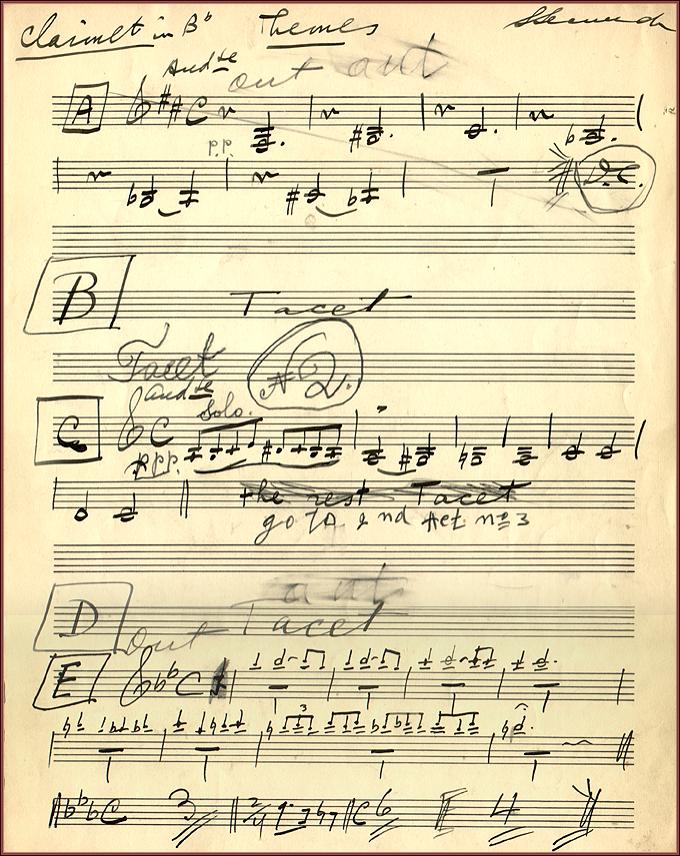 Clarinet in B♭ Themes
Andte out out
A C
p.p.
D.C.
B Tacet
Tacet № 2.
Andte Solo.
C C
ppp.
the rest Tacet
go to A 2nd Act no 3
out
D Tacet
out
E C
3
C 3 2/4 C 6 4